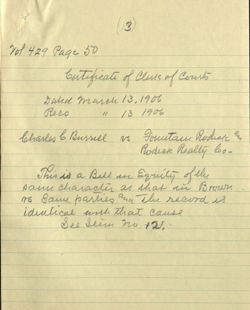 (3)
Vol 429 Page 50
Certificate of Clerk of Courts
Dated March 13, 1906
Recd " 13 1906
Charles C Burrill vs Fountain Rodick &
Rodick Realty Co-
This is a Bill in Equity of the
same character as that in Brown
vs Same parties and the record is
identical with that cause
See Item No 12.